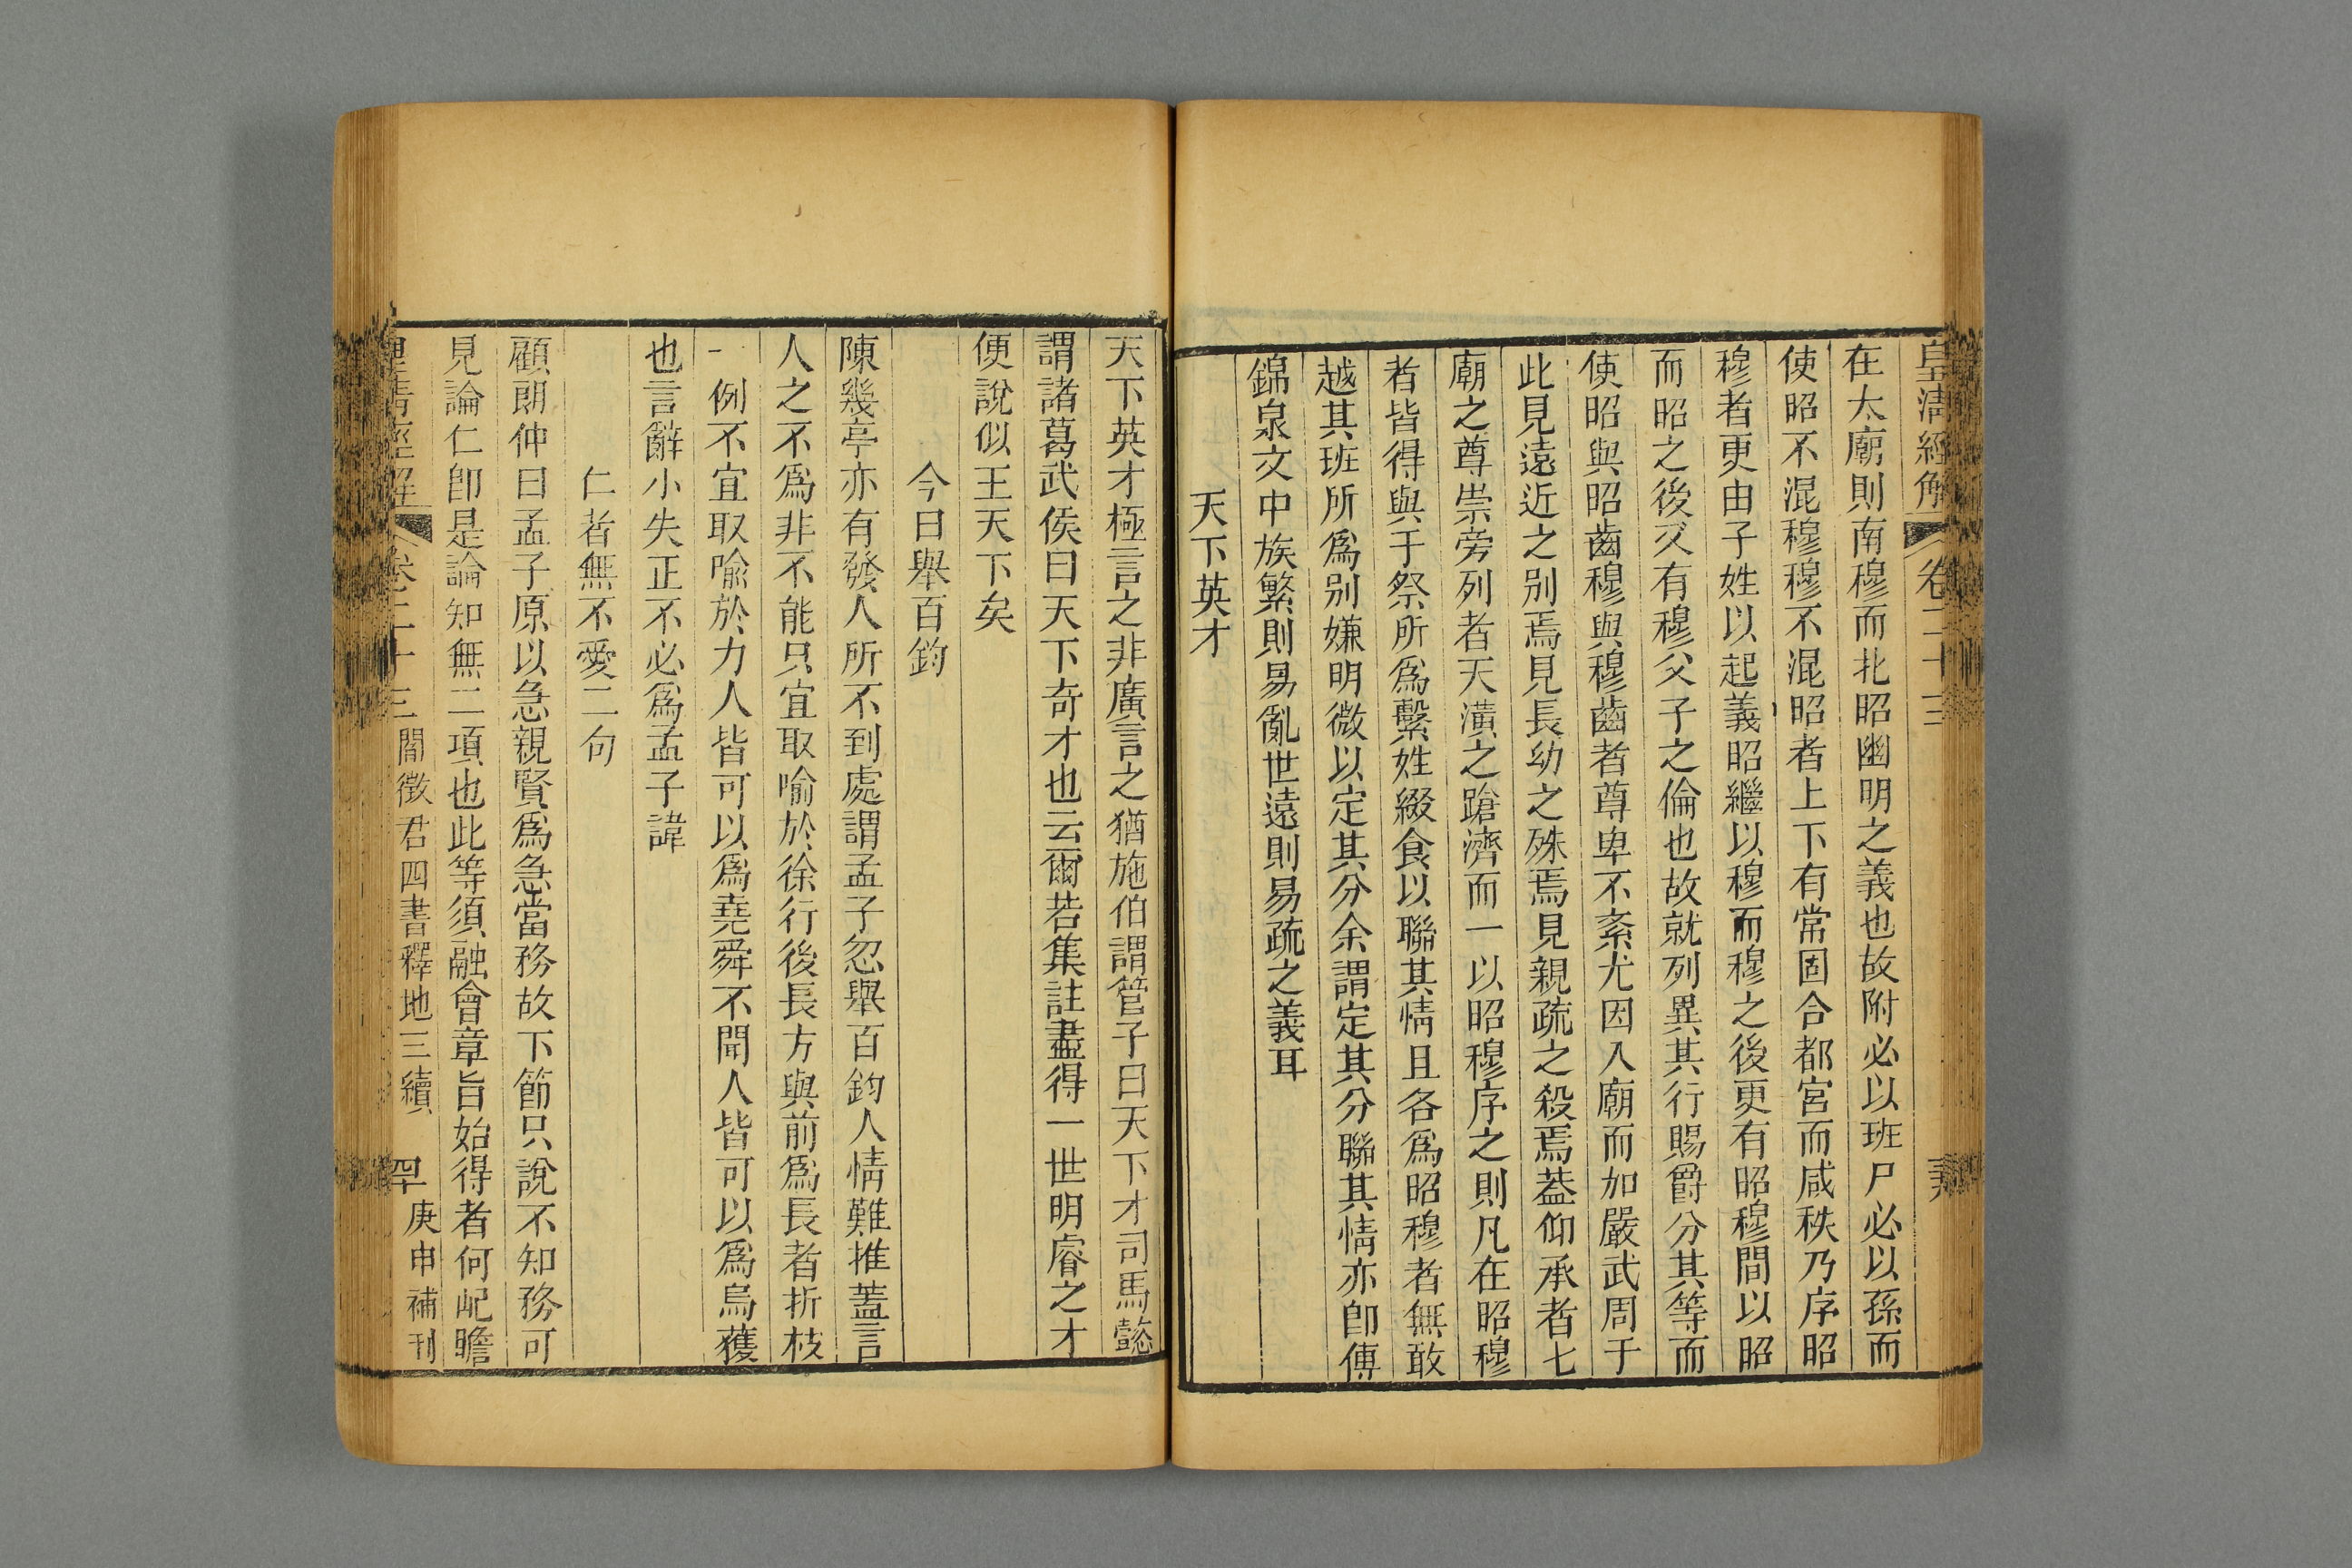 皇清經解 卷二十三
在太廟則南穆而北昭幽明之義也故附必以班尸必以孫而
使昭不混穆穆不混昭者上下有常固合都宮而咸秩乃序昭
穆者更由子姓以起義昭繼以穆而穆之後更有昭穆間以昭
而昭之後又有穆父子之倫也故就列異其行賜爵分其等而
使昭與昭齒穆與穆齒者尊卑不紊尤因入廟而加嚴武周于
此見遠近之别焉見長幼之殊焉見親疏之殺焉葢仰承者七
廟之尊崇旁列者天潢之蹌濟而一以昭穆序之則凡在昭穆
者皆得與于祭所爲繫姓綴食以聯其情且各爲昭穆者無敢
越其班所爲别嫌明微以定其分余謂定其分聯其情亦卽傅
錦泉文中族繁則易亂世遠則易疏之義耳
天下英才
天下英才極言之非廣言之猶施伯謂管子曰天下才司馬懿
謂諸葛武侯曰天下奇才也云爾若集註盡得一世明睿之才
便說似王天下矣
今日舉百鈞
陳幾亭亦有發人所不到處謂孟子忽舉百鈞人情難推蓋言
人之不爲非不能只宜取喻於徐行後長方與前爲長者折枝
一例不宜取喻於力人皆可以爲堯舜不聞人皆可以爲烏獲
也言辭小失正不必爲孟子諱
仁者無不愛二句
顧朗仲曰孟子原以急親賢爲急當務故下節只說不知務可
見論仁卽是論知無二項也此等須融會章旨始得者何屺瞻
皇清經解 卷二十三 閻徵君四書釋地三續 罕 庚申補刊